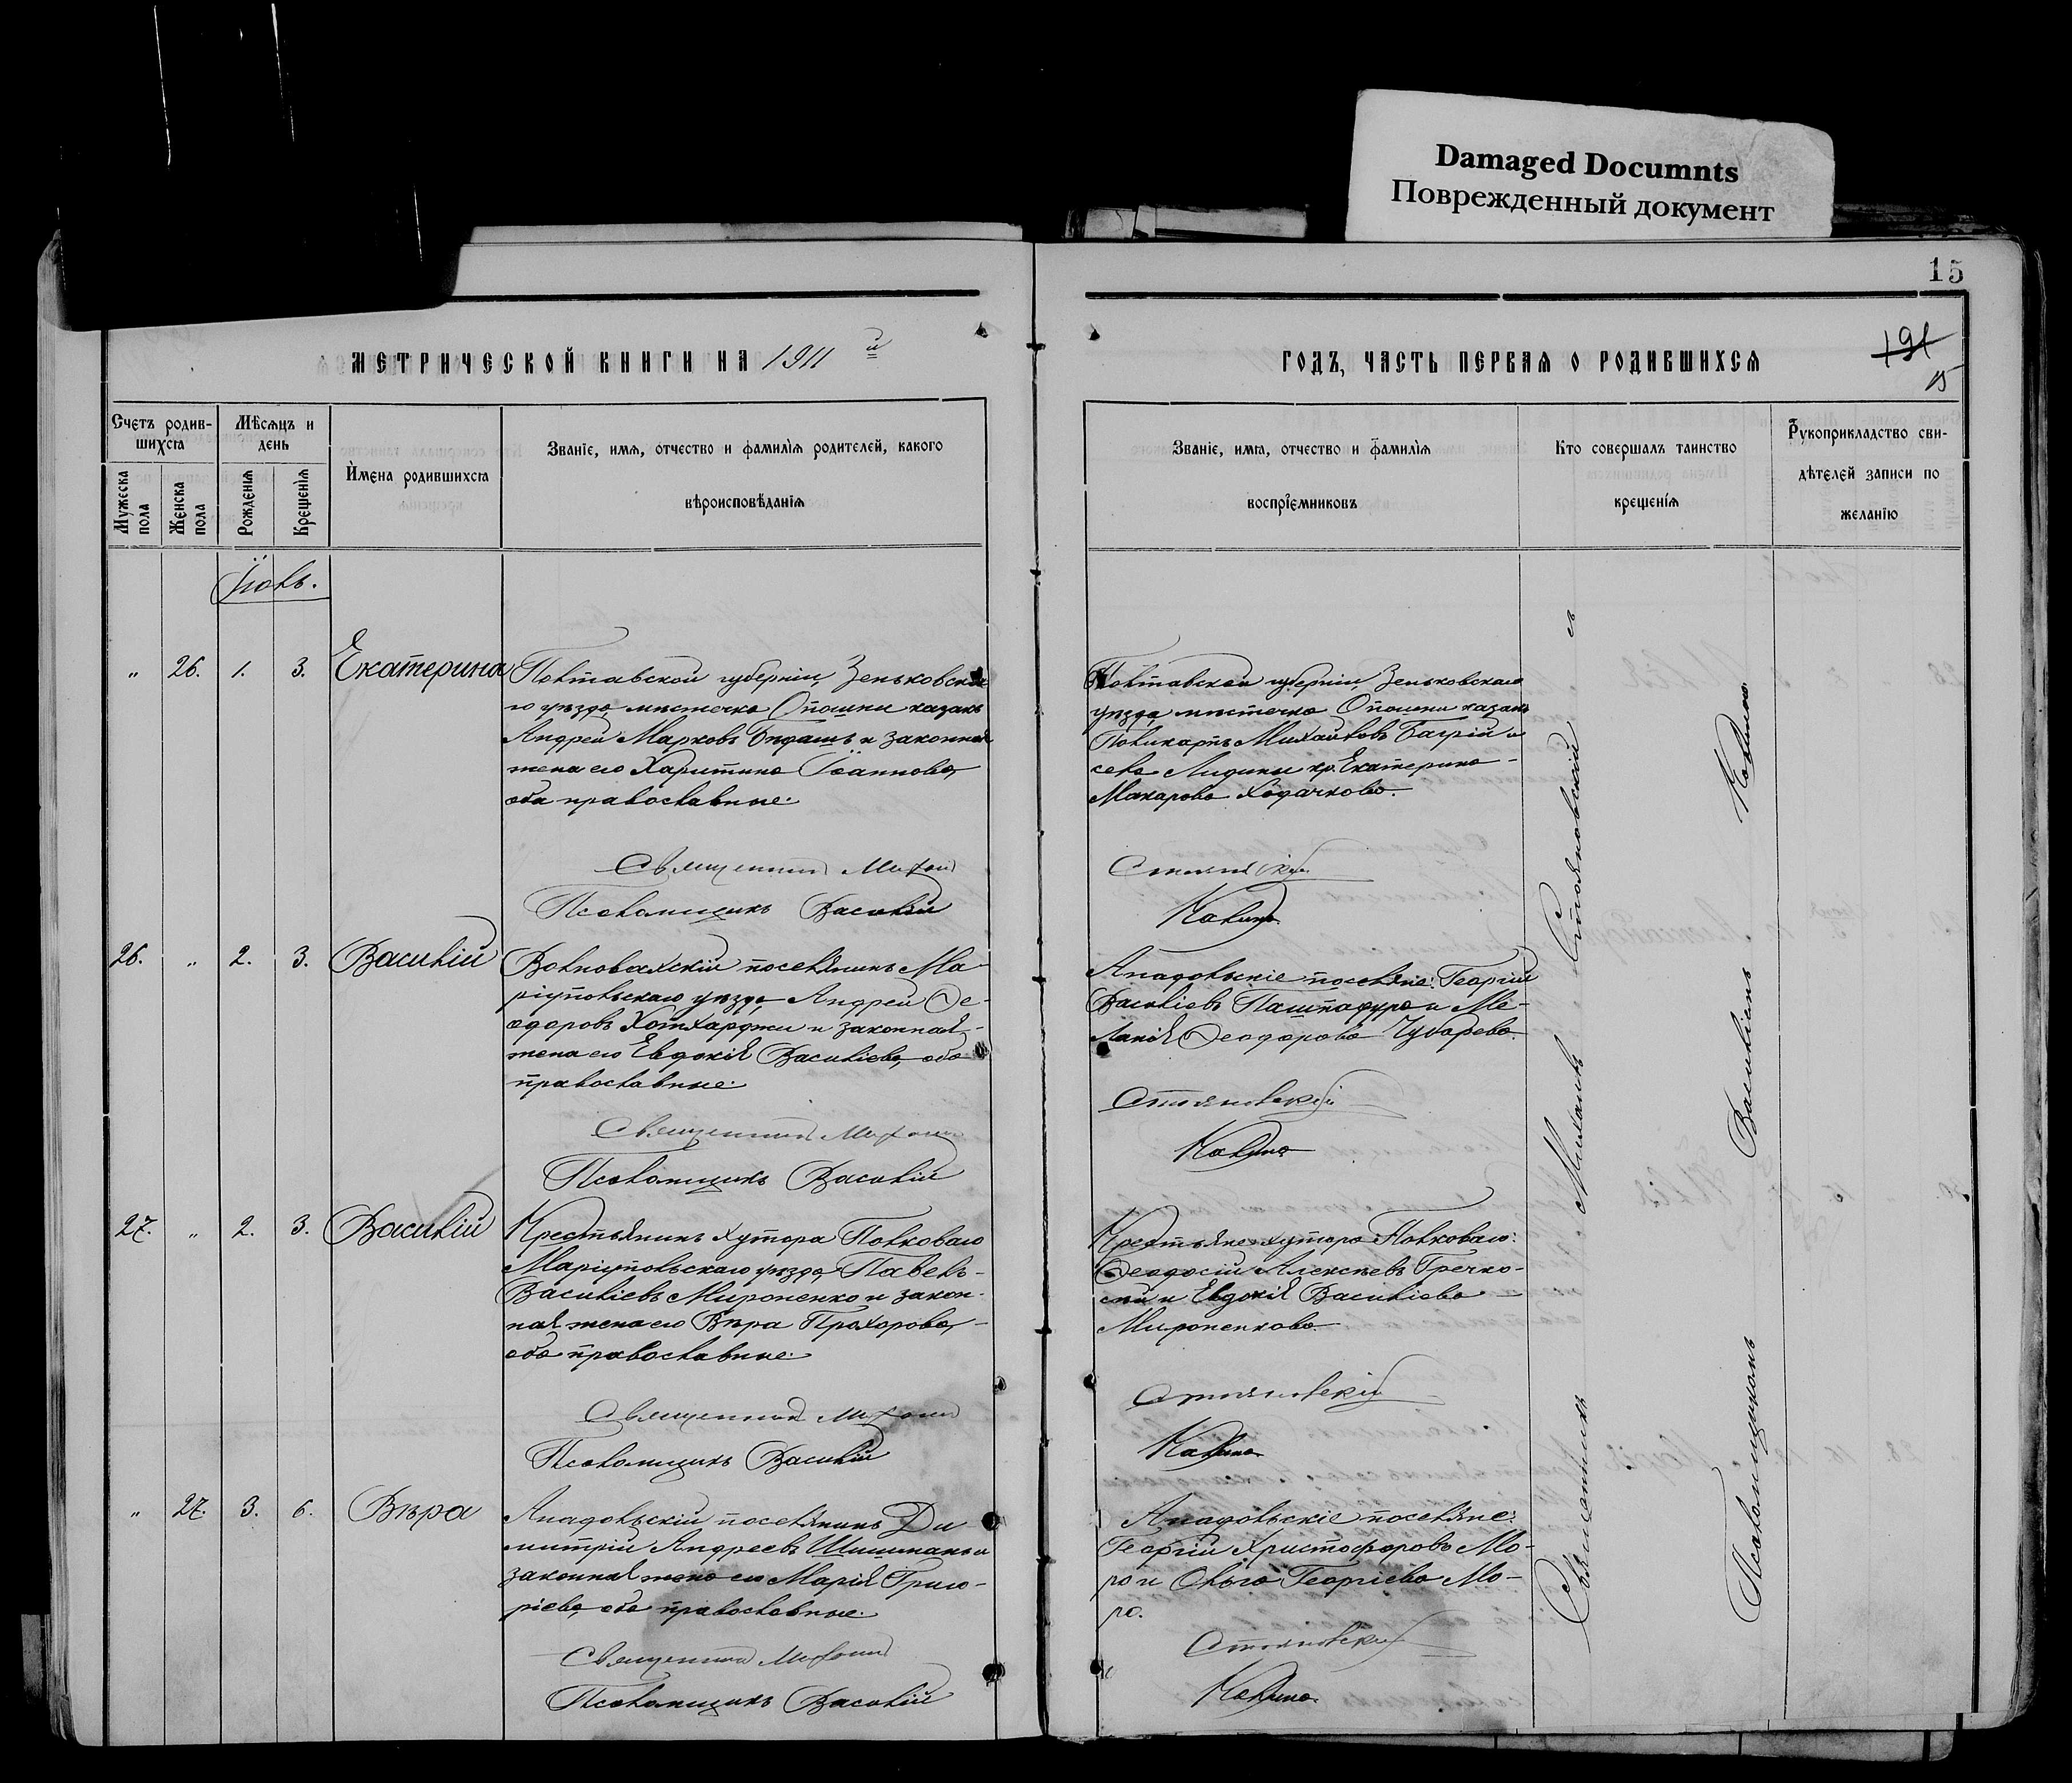 Damaged Documnts
Поврежденный документ
15
191
15
МЕТРИЧЕСКОЙ КНИГИ НА 1911 й
ГОДЪ, ЧАСТЬ ПЕРВАЯ О РОДИВШИХСЯ
Счетъ родив-
шихся
Мѣсяцъ и
день
Мужеска
пола
Женска
пола
Рожденія
Крещенія
Имена родившихся
Званіе, имя, отчество и фамилія родителей, какого
вѣроисповѣданія
Званіе, имя, отчество и фамилія
воспріемниковъ
Кто совершалъ таинство
крещенія
Рукоприкладство сви-
дѣтелей записи по
желанію
„ 26. 1. 3. Екатерина
Полтавской губерніи, Зеньковска-
го уѣзда мѣстечка Опошни казакъ
Андрей Марковъ и законная
жена его Харитина Іоаннова,
оба православные.
Священник Михаил
Псаломщикъ Василій
Полтавской губерніи, Зеньковскаго
уѣзда мѣстечка Опошни казакъ
Поликарпъ Михайловъ Багрій и
села кр. Екатерина
Макарова
Стояновскій
Калина
26. „ 2. 3. Василій
Волновахскій поселянинъ Ма-
ріупольскаго уѣзда, Андрей Ѳе-
одоровъ Хотхарджи и законная
жена его Евдокія Василіева, оба
православные.
Священник Михаил
Псаломщикъ Василій
Анадольскіе поселяне: Георгій
Василіевъ и Ме-
ланія Ѳеодорова Чубарева.
Стояновскій
Калина
27. „ 2. 3. Василій
Крестьянинъ хутора Полковаго
Маріупольскаго уѣзда, Павелъ
Василіевъ Мироненко и закон-
ная жена его Вѣра Прохорова,
оба православные.
Священник Михаил
Псаломщикъ Василій
Крестьяне хутора Полковаго:
Ѳеодосій Алексѣевъ Гречко-
сей и Евдокія Василіева
Мироненкова.
Стояновскій
Калина
„ 27. 3. 6. Вѣра
Анадольскій поселянинъ Ди-
митрій Андреевъ Шишманъ и
законная жена его Марія Григо-
ріева, оба православные.
Священник Михаил
Псаломщикъ Василій
Анадольскіе поселяне:
Георгій Христофоровъ Мо-
ро и Ольга Георгіева Мо-
ро.
Стояновскій
Калина
Священникъ Михаилъ Стояновскій съ
Псаломщикомъ Василіемъ Калиною.